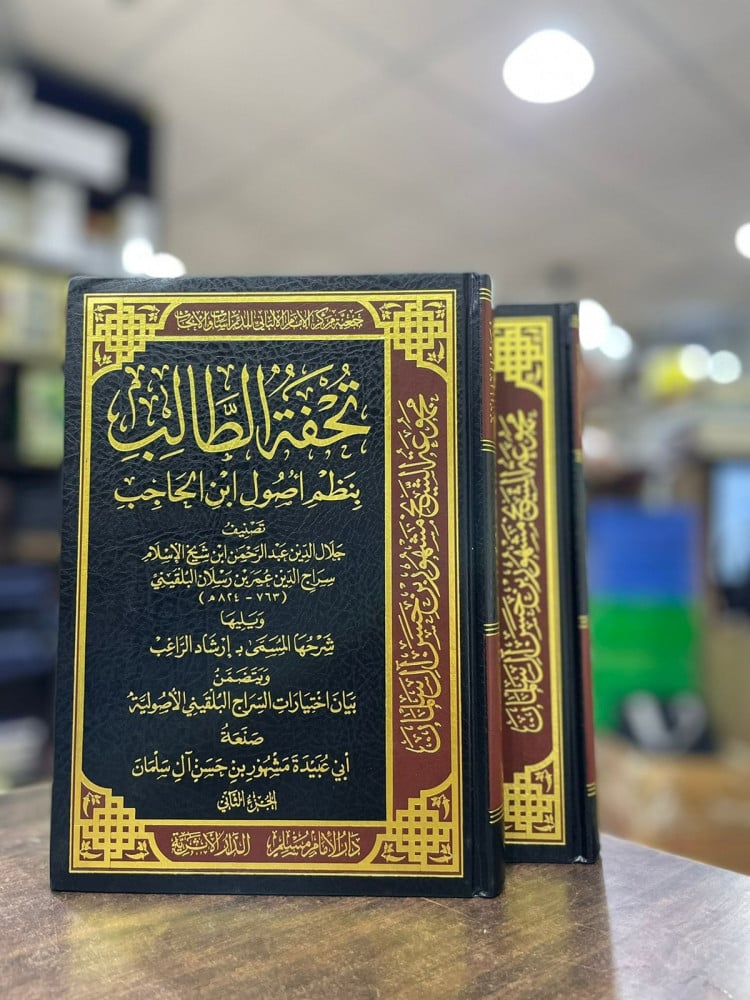 جمعية مركز الإمام الألباني للدراسات والأبحاث
تُحْفَةُ الطَّالِبِ
بِنَظْمِ أُصُولِ ابْنِ الحَاجِبِ
تَصْنِيفُ
جَلَال الدِّين عَبْد الرَّحْمَن ابْن شَيْخ الإِسْلَام
سِرَاج الدِّين عُمَر بْن رَسْلَان البُلْقِينِيّ
(٧٦٣ - ٨٢٤ هـ)
وَيَلِيهَا
شَرْحُهَا المُسَمَّى بِـ إِرْشَاد الرَّاغِب
وَيَتَضَمَّنُ
بَيَانَ اخْتِيَارَاتِ السِّرَاجِ البُلْقِينِي الأُصُولِيَّةُ
صَنَعَهُ
أَبِي عُبَيْدَةَ مَشْهُور بْن حَسَن آل سَلْمَان
الجُزْءُ الثَّانِي
دار الإمام مسلم
الدار الأثرية
مجموعة الشيخ مشهور بن حسن آل سلمان
مجموعة الشيخ مشهور بن حسن آل سلمان